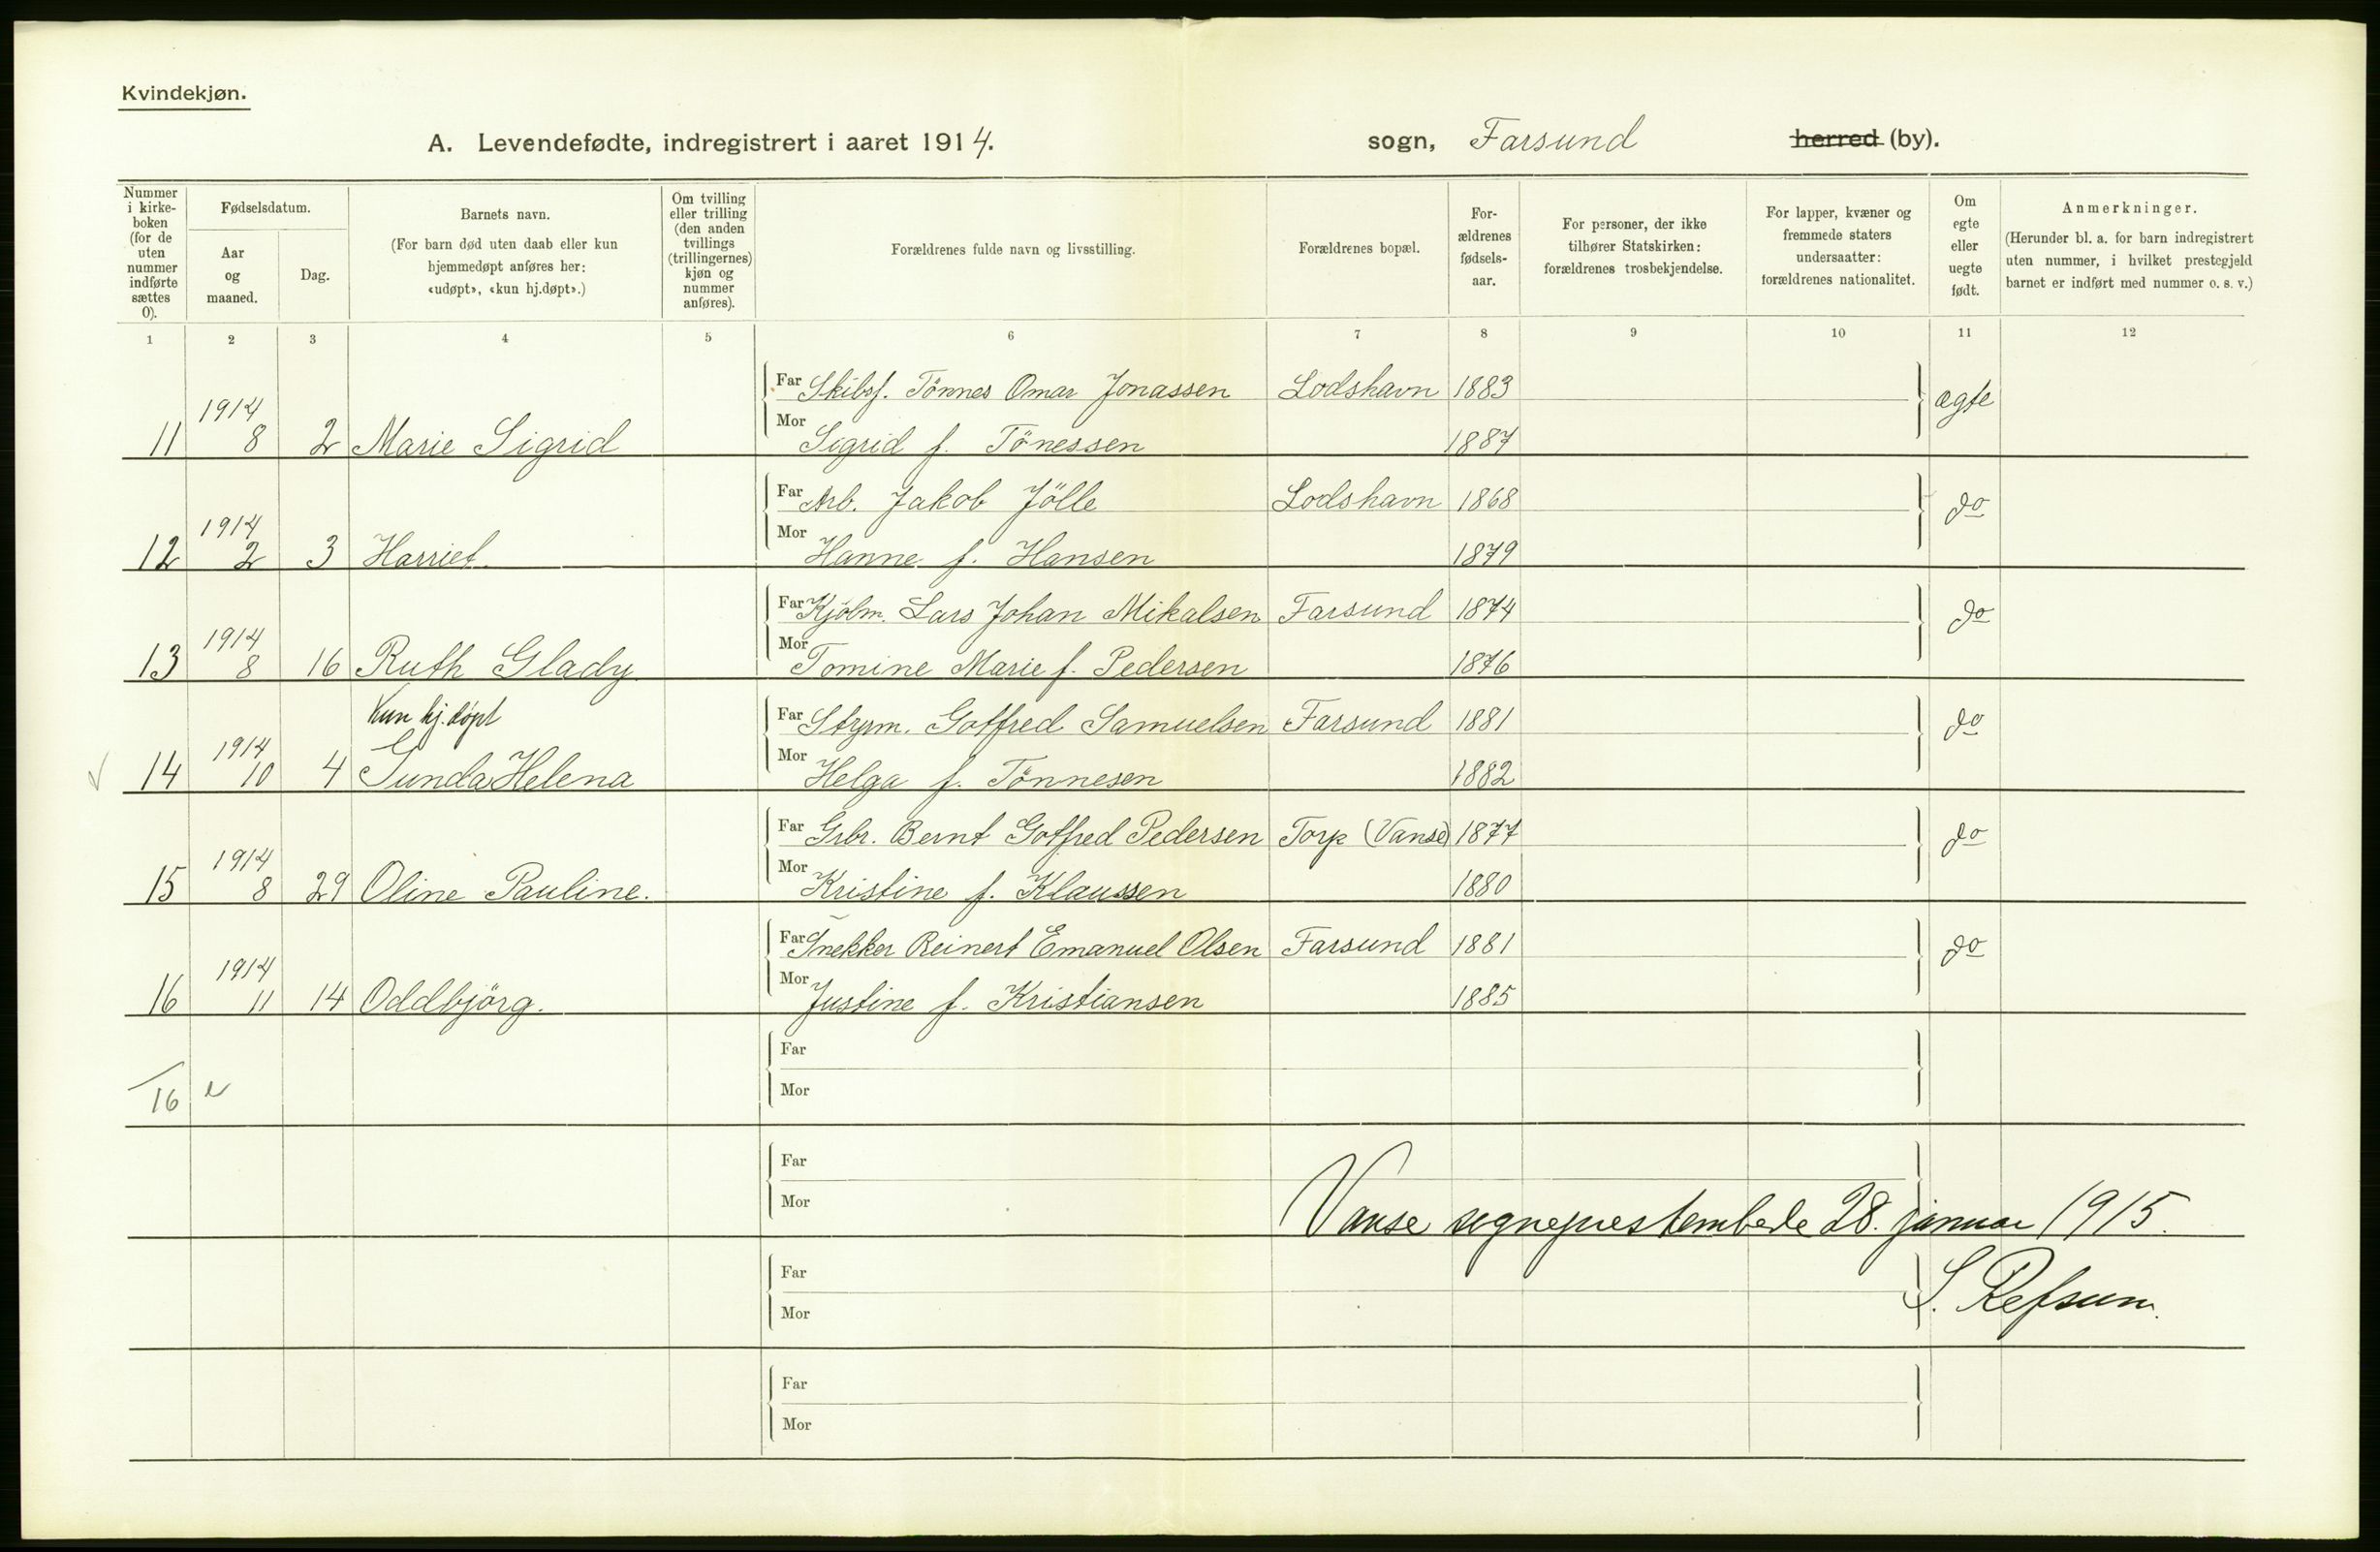 Kvindekjøn.
A. Levendefødte, indregistrert i aaret 1914. sogn, Farsund herred (by).
Nummer i kirkeboken (for de uten nummer indførte sættes 0).
Fødselsdatum.
Aar og maaned.
Dag.
Barnets navn.
(For barn død uten daab eller kun hjemmedøpt anføres her: «udøpt», «kun hj.døpt».)
Om tvilling eller trilling (den anden tvillings (trillingernes) kjøn og nummer anføres).
Forældrenes fulde navn og livsstilling.
Forældrenes bopæl.
For-ældrenes fødsels-aar.
For personer, der ikke tilhører Statskirken: forældrenes trosbekjendelse.
For lapper, kvæner og fremmede staters undersaatter: forældrenes nationalitet.
Om egte eller uegte født.
Anmerkninger.
(Herunder bl. a. for barn indregistrert uten nummer, i hvilket prestegjeld barnet er indført med nummer o. s. v.)
1 2 3 4 5 6 7 8 9 10 11 12
Far Skibsf. Tönnes Omar Jonassen Lodshavn 1883 ægte
11 1914 8 2 Marie Sigrid Mor Sigrid f. Tönessen 1887
Far Arb. Jakob Jölle Lodshavn 1868 do
12 1914 2 3 Harriet. Mor Hanne f. Hansen 1879
Far Kjölm. Lars Johan Mikalsen Farsund 1874 do
13 1914 8 16 Ruth Glady Mor Tomine Marie f. Pedersen 1876
Kun hj.døpt
Far Styrm. Gotfred Samuelsen Farsund 1881 do
14 1914 10 4 Gunda Helena Mor Helga f. Tönnesen 1882
Far Grbr. Bernt Gotfred Pedersen Torp (Vanse) 1877 do
15 1914 8 29 Oline Pauline. Mor Kristine f. Klaussen 1880
Far Snekker Reinert Emanuel Olsen Farsund 1881 do
16 1914 11 14 Oddbjörg. Mor Justine f. Kristiansen 1885
Far
16 Mor
Far
Mor
Vanse sogneprestembede 28. januar 1915.
Far
Mor
S. Refsum.
Far
Mor